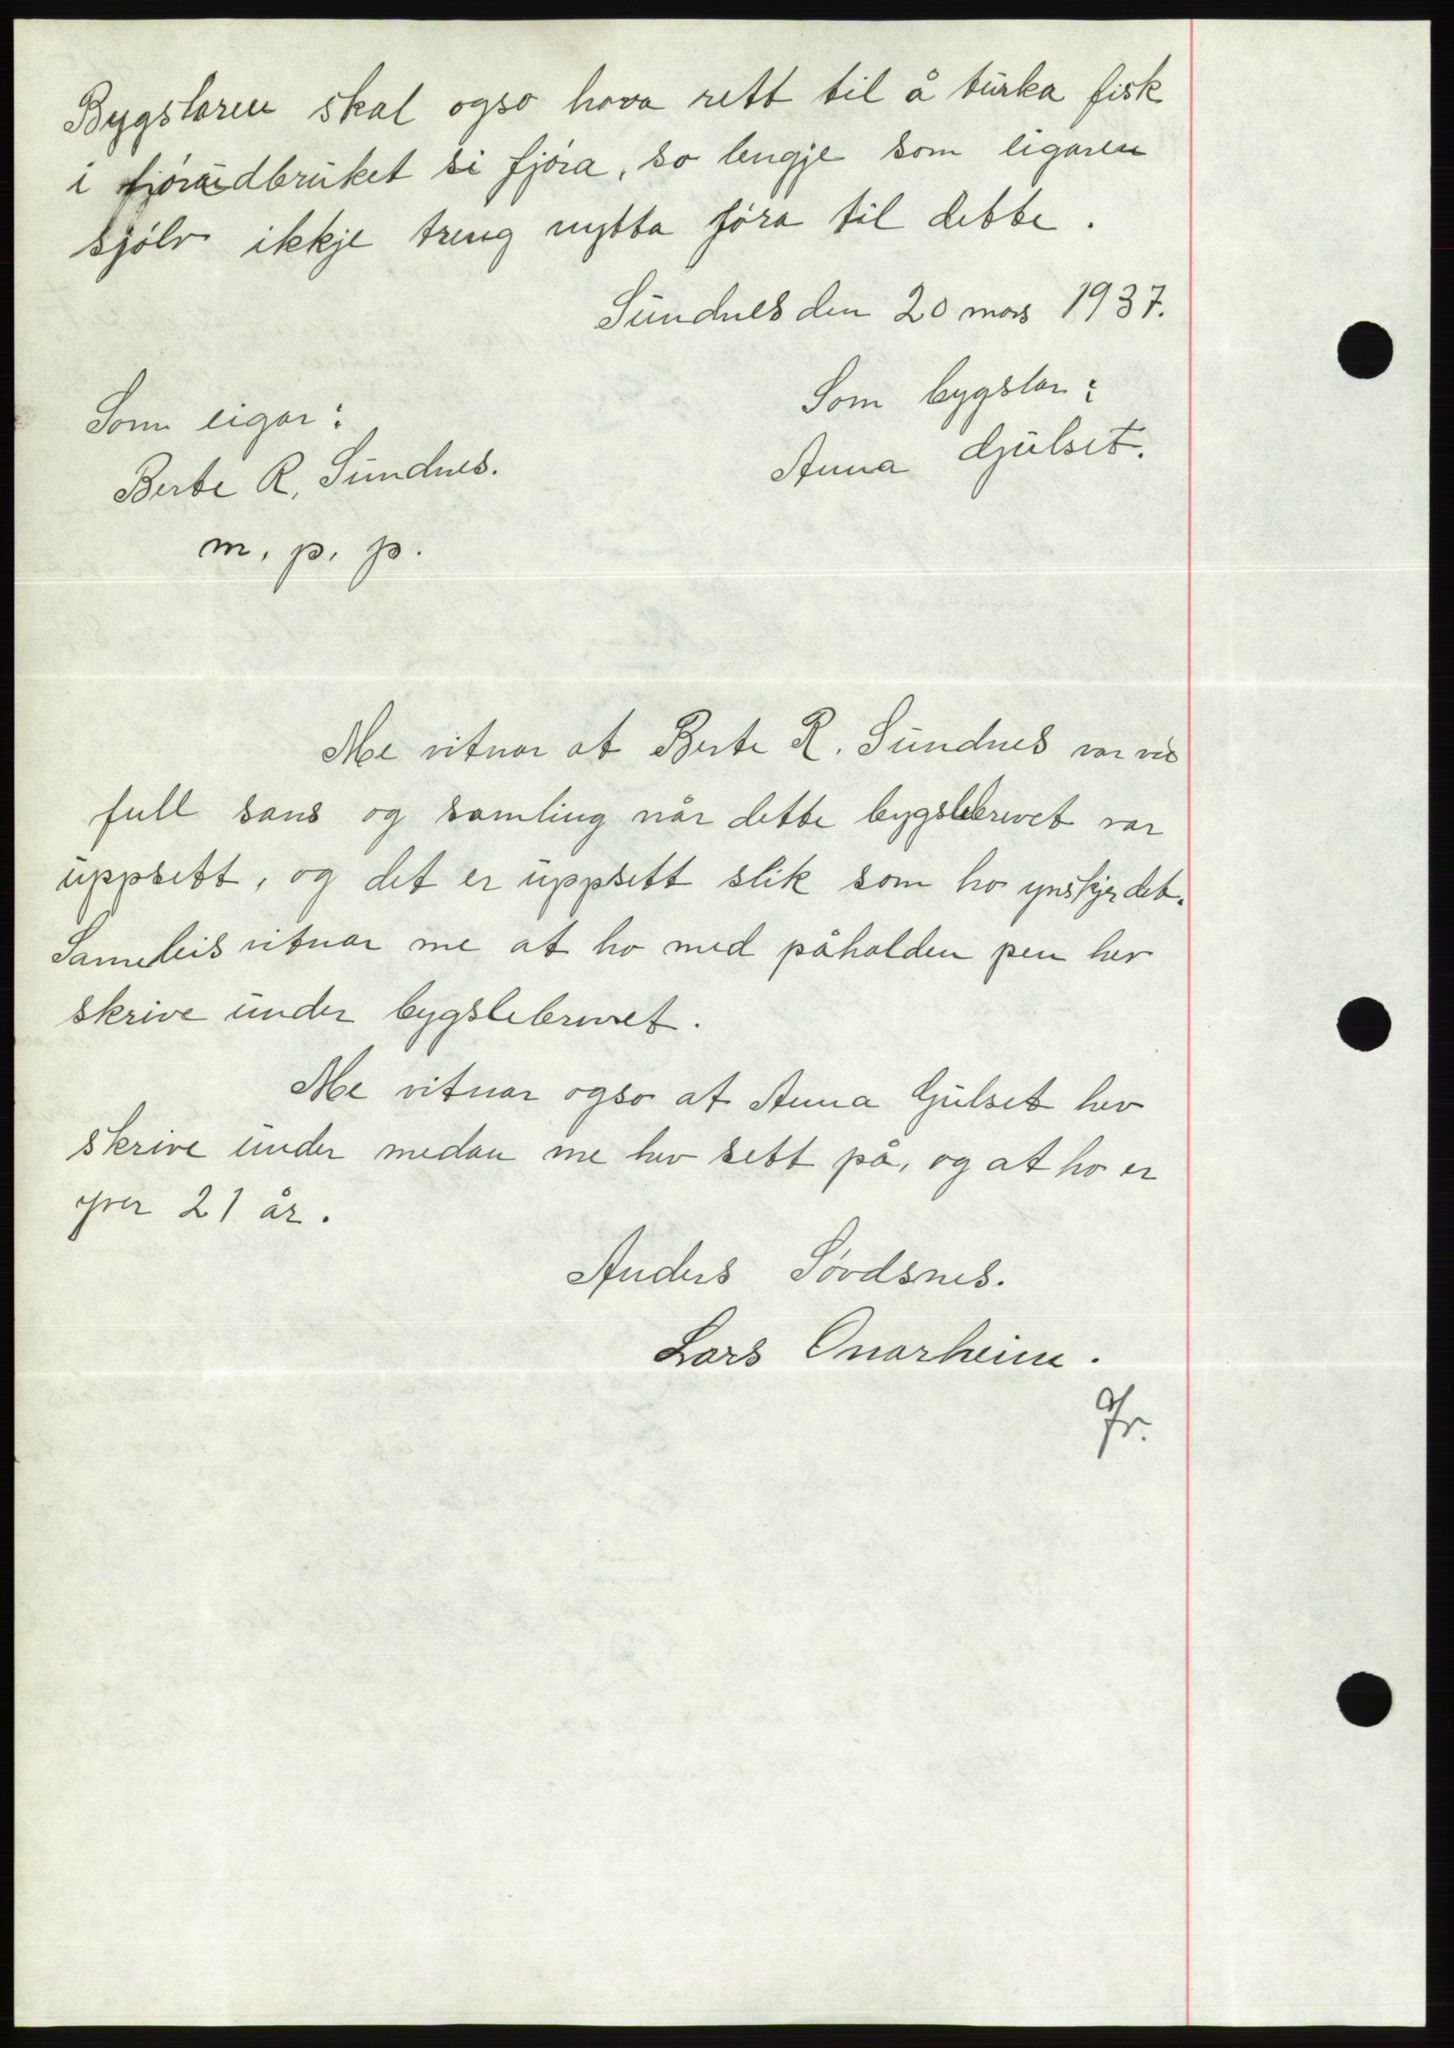 Bygslaren skal ogso hava rett til å turka fisk
i hovudbruket si fjöra, so lengje som eigaren
sjölv ikkje treng nytta föra til dette.
Sundnes den 20 mars 1937.
Som eigar:
Berte R. Sundnes.
m. p. p.
Som bygslar:
Anna Gjulset.
Me vitnar at Berte R. Sundnes var ved
full sans og samling når dette bygslebrevet var
uppsett, og det er uppsett slik som ho ynskjer det.
Sameleis vitnar me at ho med påhalden pen hev
skrive under bygslebrevet.
Me vitnar ogso at Anna Gjulset hev
skrive under medan me hev sett på, og at ho er
yver 21 år.
Anders Sövdsnes.
Lars Onarheim.